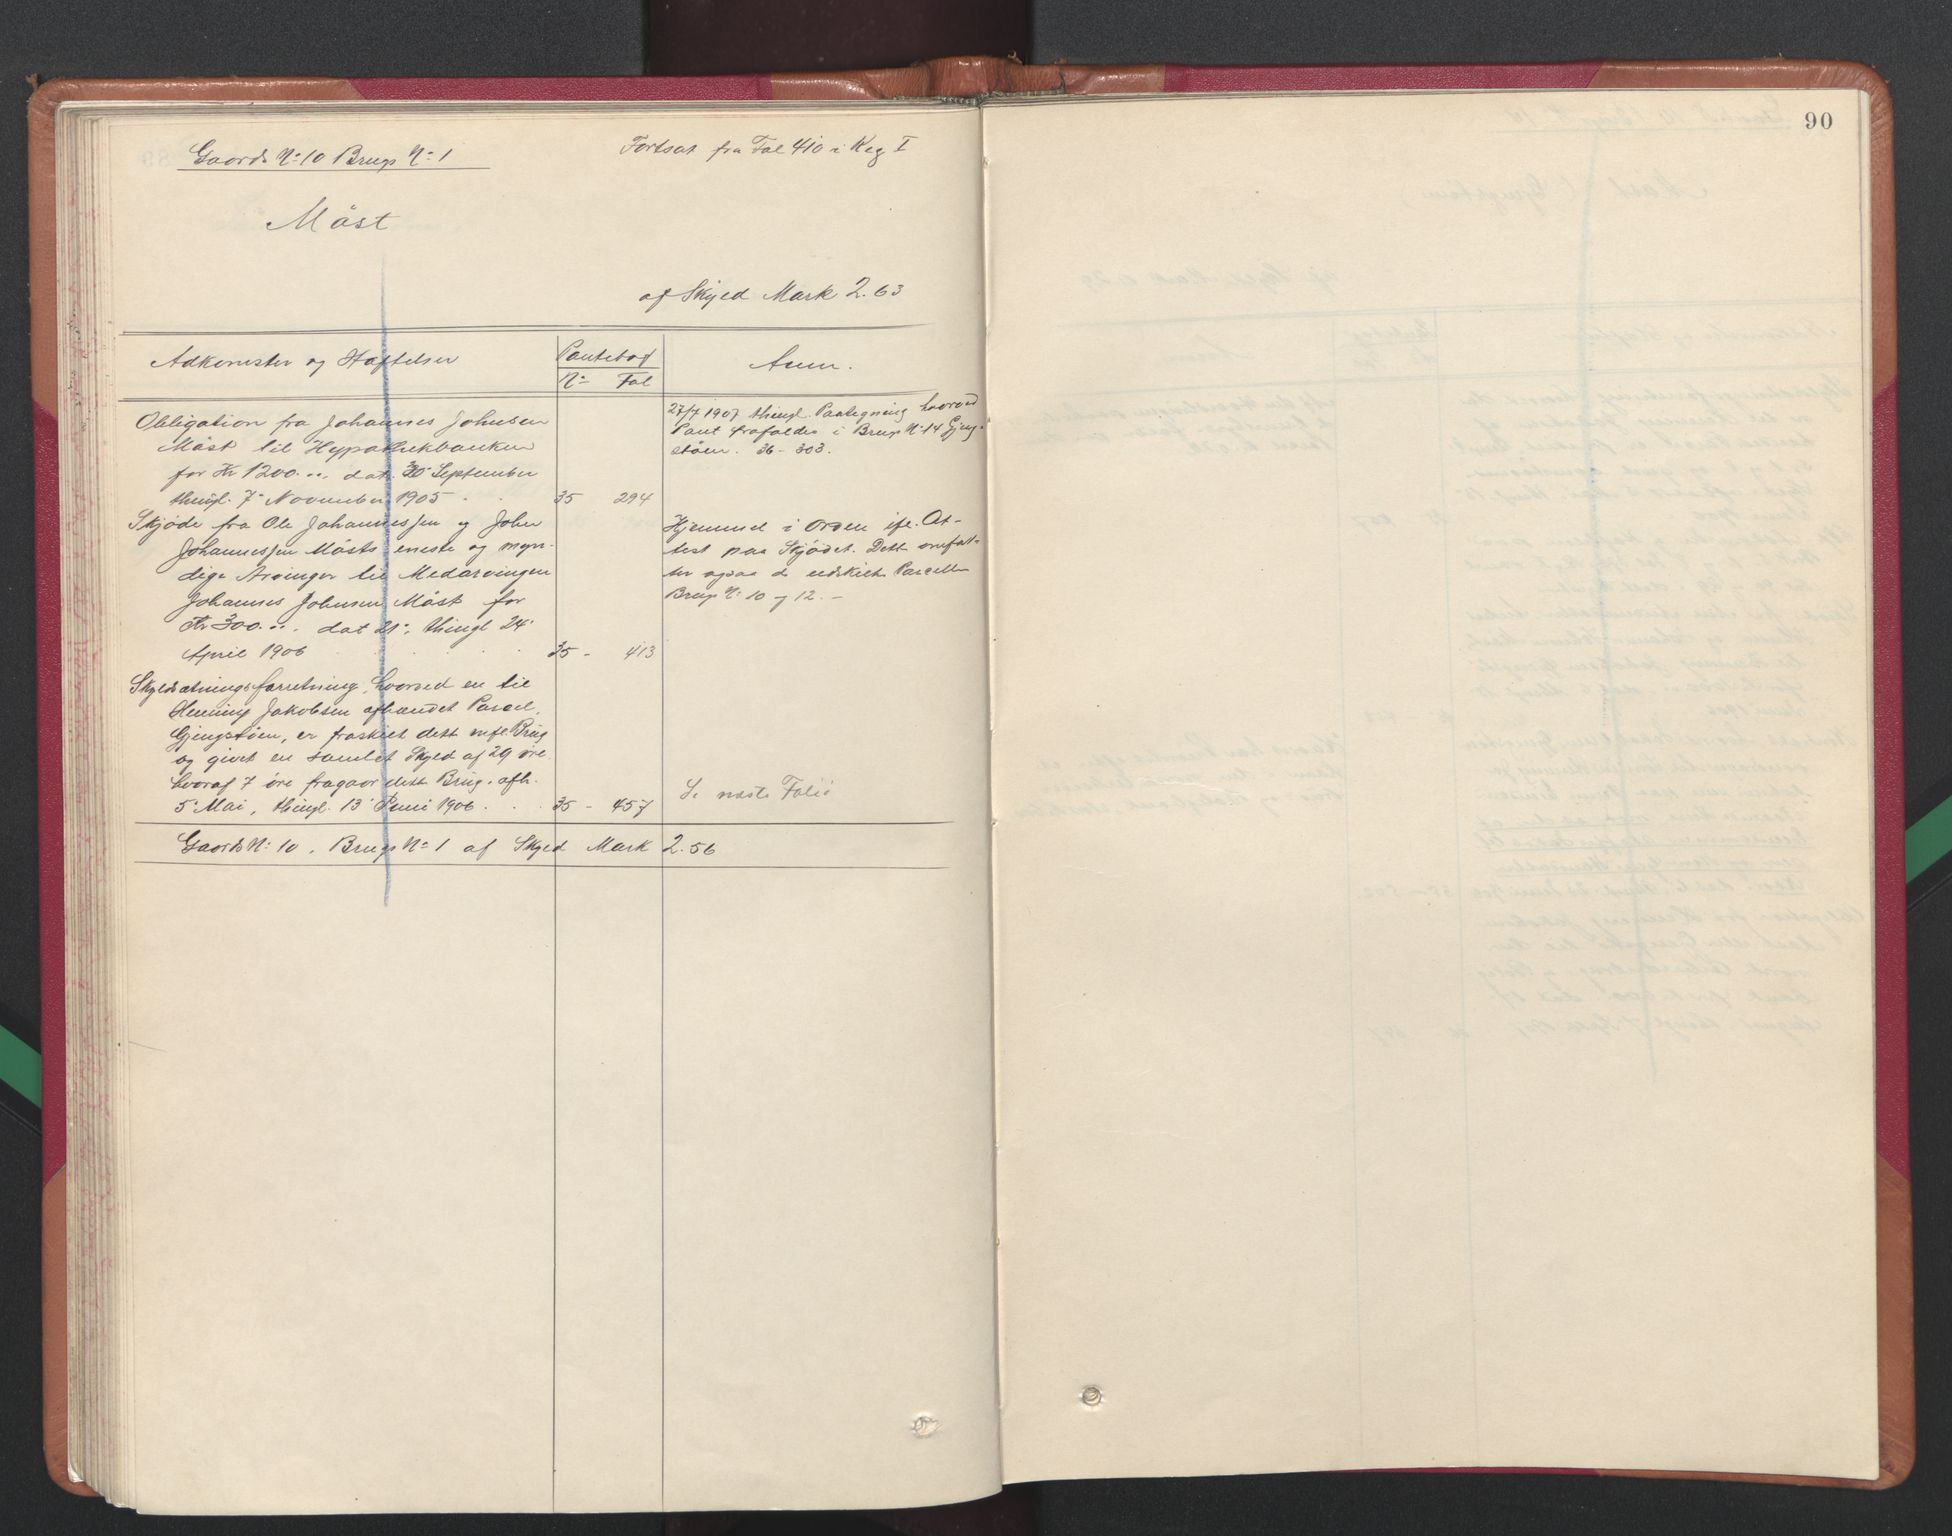 Gaards No 10 Brugs No 1
Fortsat fra Fol 410 i Reg I
Möst
af Skyld Mark 2.63
Adkomster og Hæftelser
Pantebog
No Fol
Anm.
Obligation fra Johannes Johnsen
Möst til Hypothekbanken
for Kr 1200.00, dat. 30' September
thingl. 7' November 1905 . . 35 294
27/7 1907 thingl. Paategning hvorved
Pant frafaldes i Brugs No 14 Gjeng-
stöen. 36 - 303.
Skjöde fra Ole Johannessen og John
Johannessen Mösts eneste og myn-
dige Arvinger til Medarvingen
Johannes Johnsen Möst for
Kr 300.00. dat 21', thingl 24'
April 1906 . . . . . 35 - 413
Hjemmel i Orden ifl. At-
test paa Skjödet. Dette omfat-
ter ogsaa de udskilte Parceller
Brugs No 10 og 12. -
Skyldsætningsforretning, hvorved en til
Henning Jakobsen afhændet Parcel,
Gjengstöen, er fraskilt dette mfl. Brug
og givet en samlet Skyld af 29 öre
hvoraf 7 öre fragaar dette Brug. afh.
5' Mai, thingl. 13' Juni 1906 . . . 35 - 457
Se næste Folio
Gaards No 10, Brugs No 1 af Skyld Mark 2.56
90